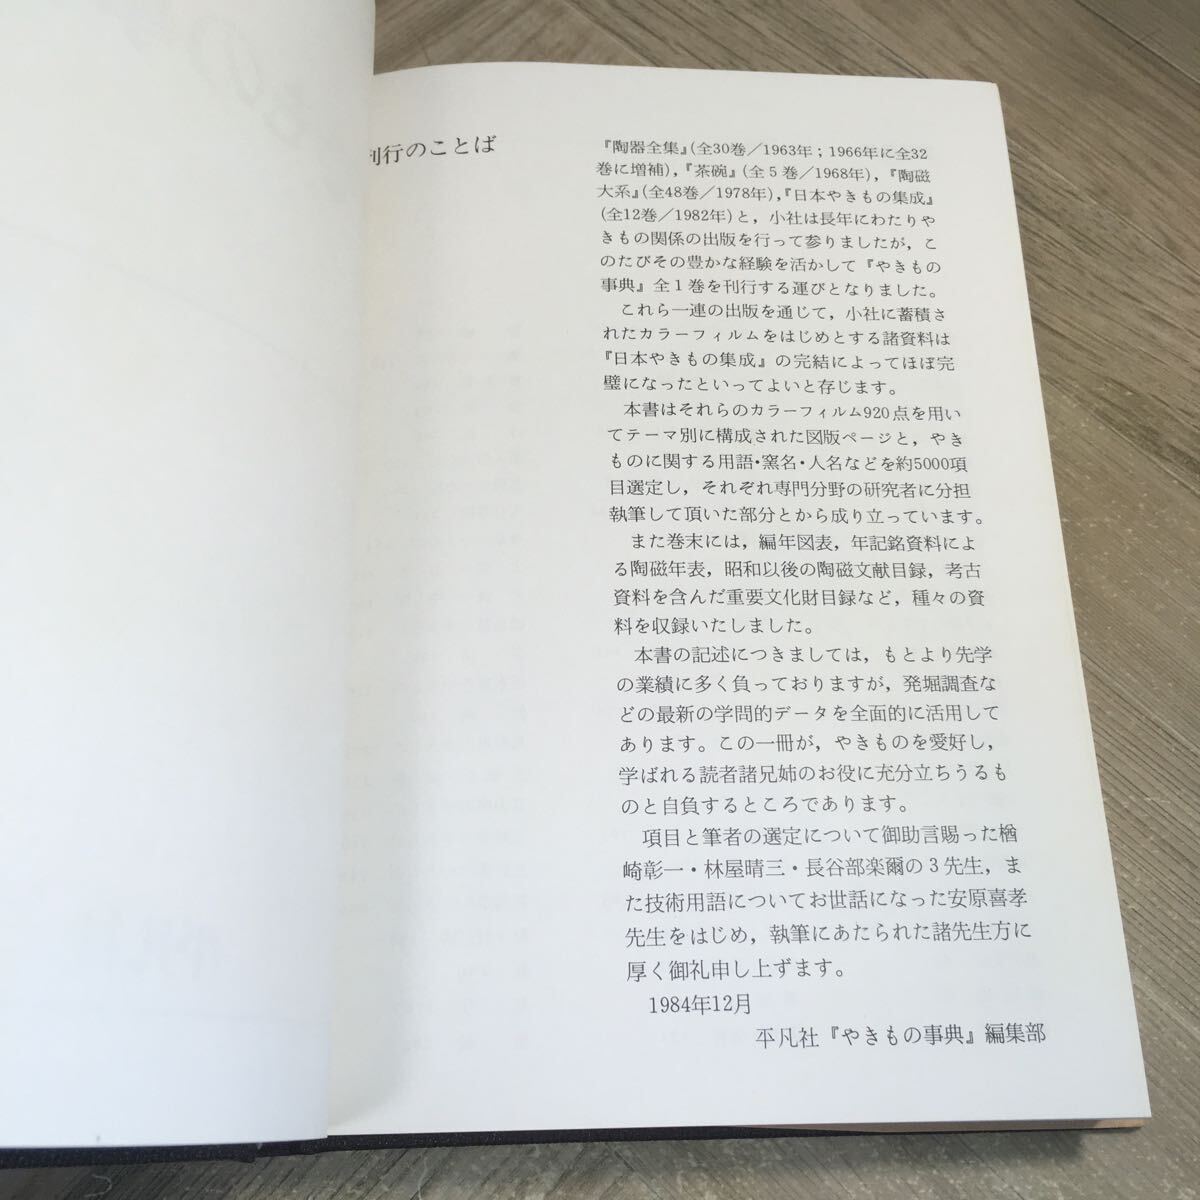 刊行のことば
『陶器全集』(全30巻／1963年；1966年に全32
巻に増補)，『茶碗』(全５巻／1968年)，『陶磁
大系』(全48巻／1978年)，『日本やきもの集成』
(全12巻／1982年)と，小社は長年にわたりや
きもの関係の出版を行って参りましたが，こ
のたびその豊かな経験を活かして『やきもの
事典』全１巻を刊行する運びとなりました。
これら一連の出版を通じて，小社に蓄積さ
れたカラーフィルムをはじめとする諸資料は
『日本やきもの集成』の完結によってほぼ完
璧になったといってよいと存じます。
本書はそれらのカラーフィルム920点を用い
てテーマ別に構成された図版ページと，やき
ものに関する用語・窯名・人名などを約5000項
目選定し，それぞれ専門分野の研究者に分担
執筆して頂いた部分とから成り立っています。
また巻末には，編年図表，年記銘資料によ
る陶磁年表，昭和以後の陶磁文献目録，考古
資料を含んだ重要文化財目録など，種々の資
料を収録いたしました。
本書の記述につきましては，もとより先学
の業績に多く負っておりますが，発堀調査な
どの最新の学問的データを全面的に活用して
あります。この一冊が，やきものを愛好し，
学ばれる読者諸兄姉のお役に充分立ちうるも
のと自負するところであります。
項目と筆者の選定について御助言賜った楢
崎彰一・林屋晴三・長谷部楽爾の３先生，ま
た技術用語についてお世話になった安原喜孝
先生をはじめ，執筆にあたられた諸先生方に
厚く御礼申し上ずます。
1984年12月
平凡社『やきもの事典』編集部